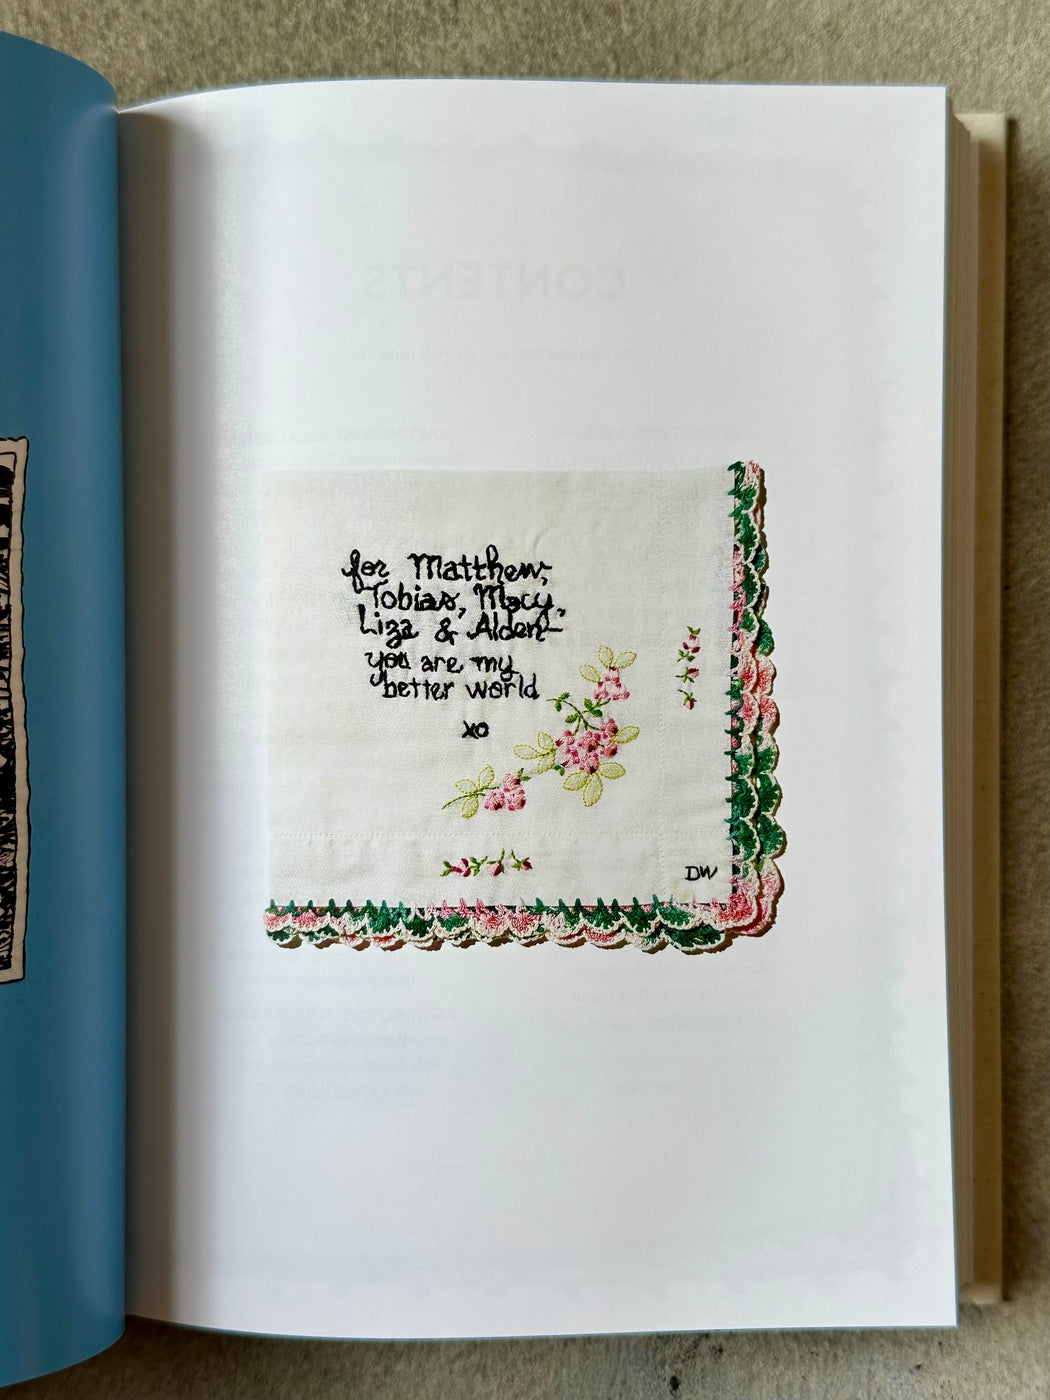 for Matthew,
Tobias, Macy,
Liza & Alden—
you are my
better world
xo
DW
CONTENTS